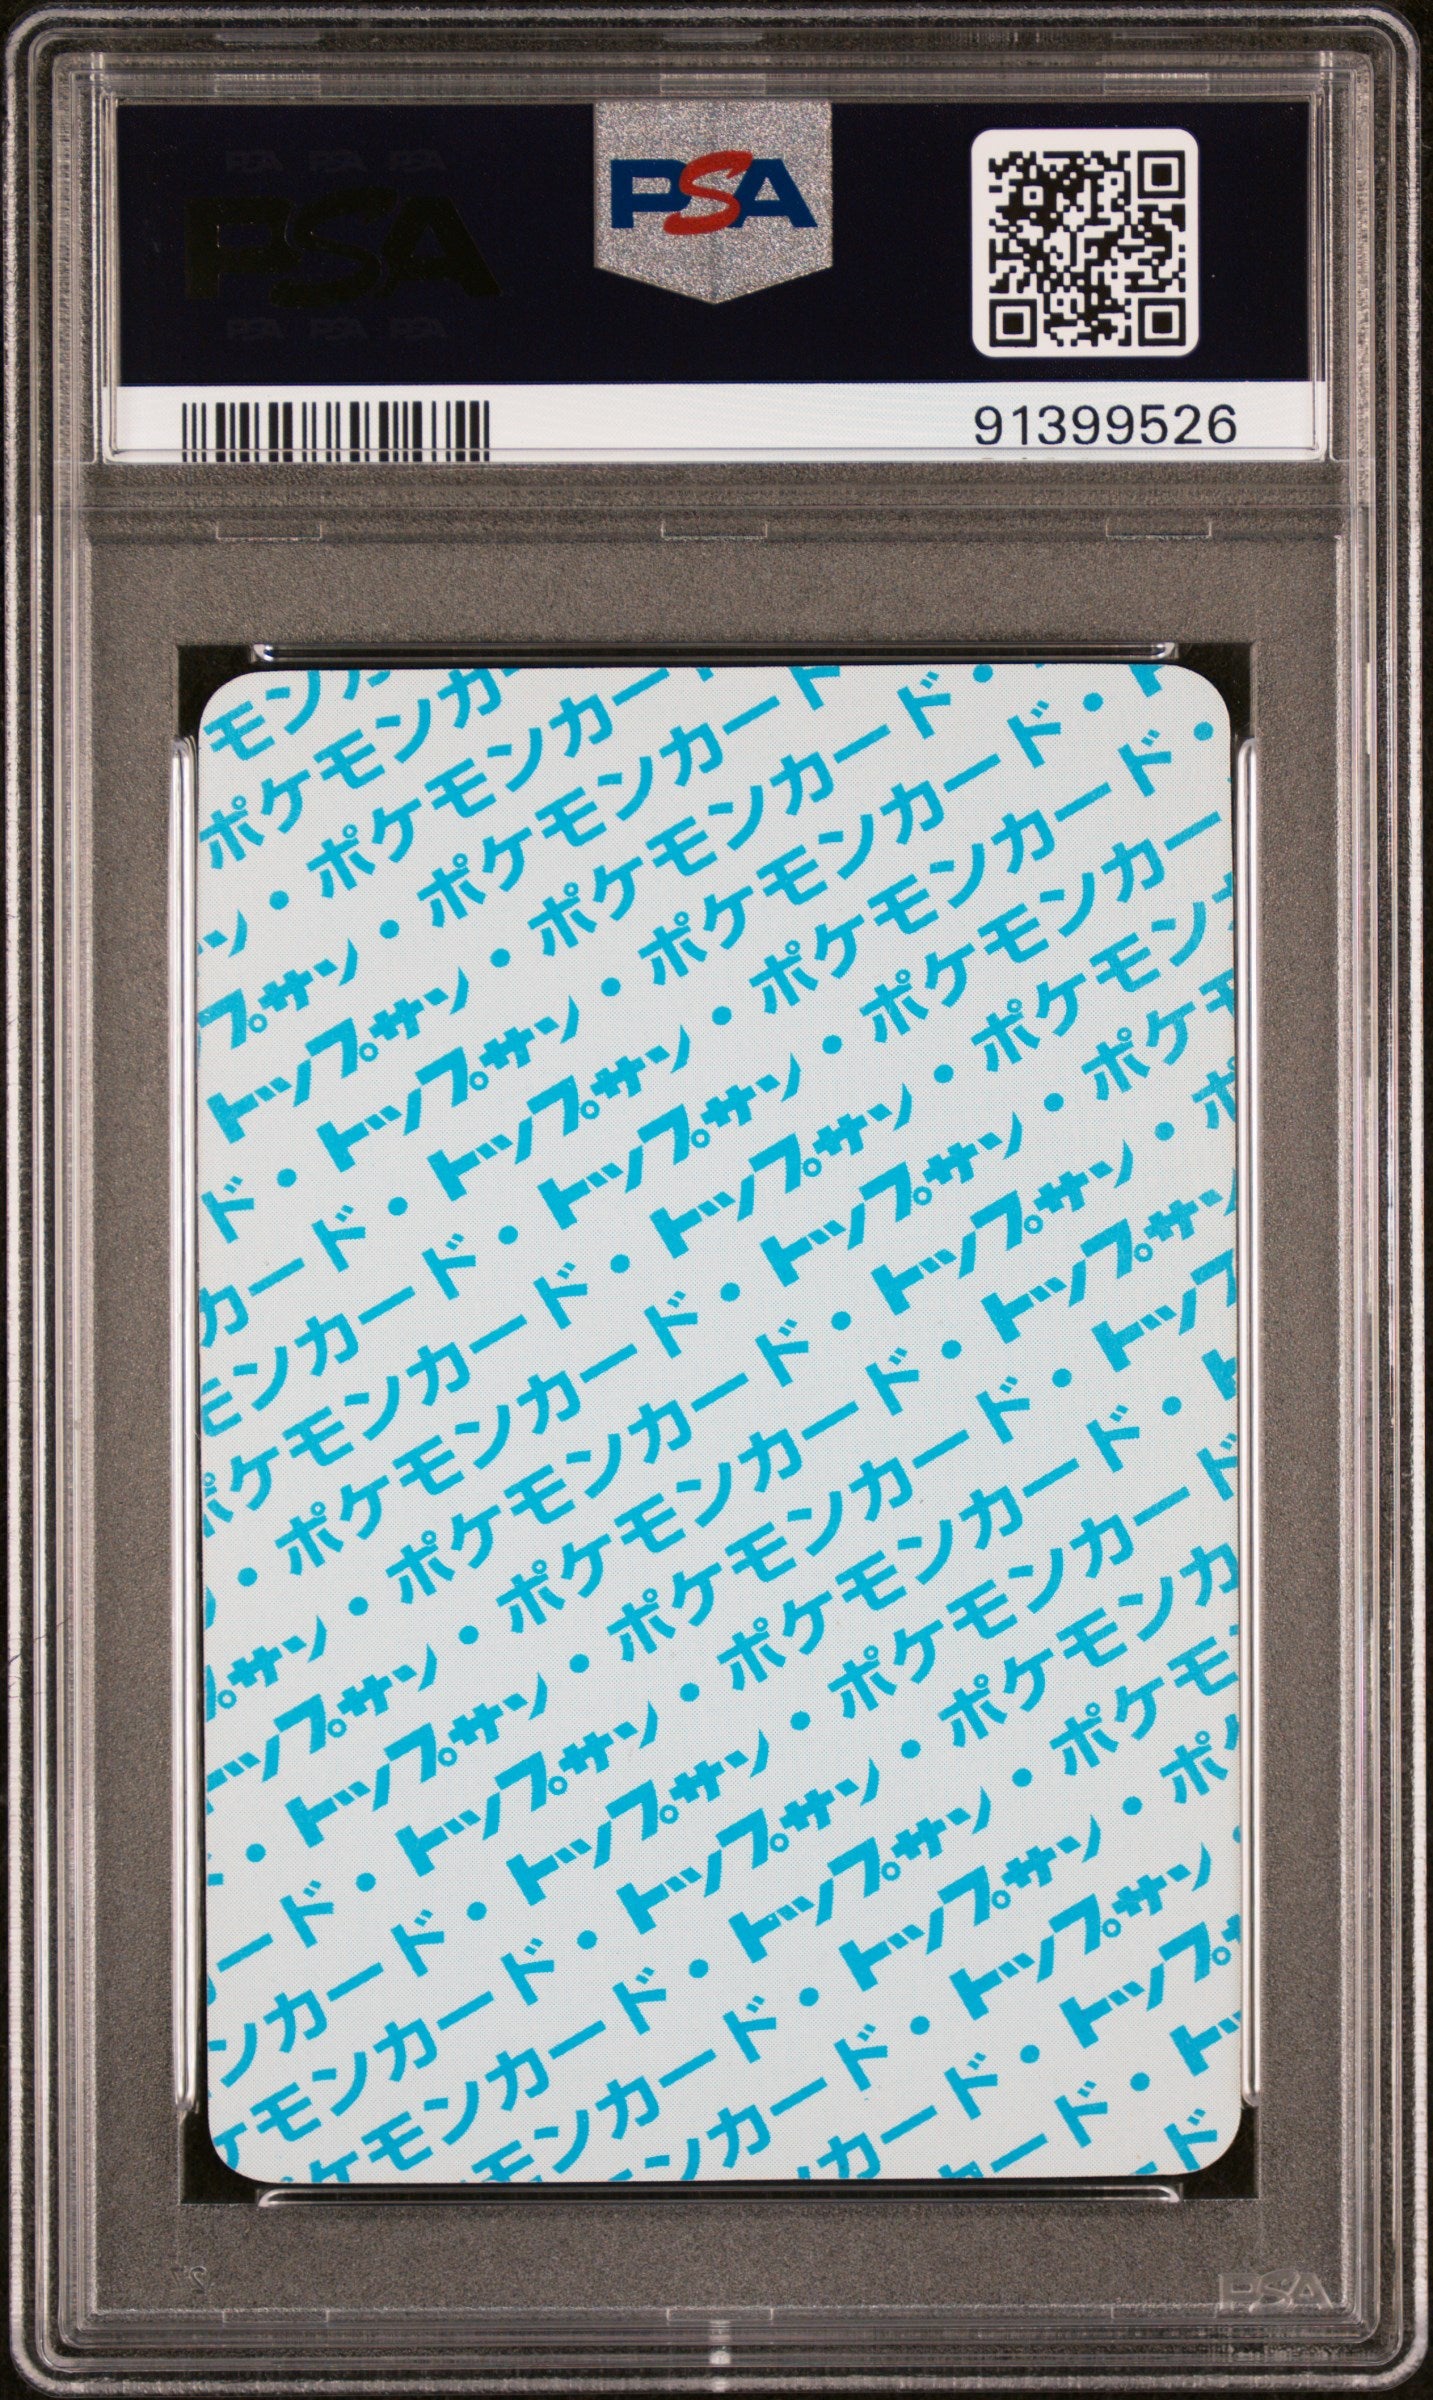 PSA PSA PSA
PSA
PSA PSA PSA
PSA
91399526
モンカ
ポケモンカ
ン・ポケモンカー
プサン・ポケモンカード
トップサン・ポケモンカード・
ド・トップサン・ポケモンカード・ト
カード・トップサン・ポケモンカード・
モンカード・トップサン・ポケモンカー
ポケモンカード・トップサン・ポケモン
・ポケモンカード・トップサン・ポケモ
プサン・ポケモンカード・トップサン・ポ
トップサン・ポケモンカード・トップサン
・トップサン・ポケモンカード・トップ
ード・トップサン・ポケモンカード・ト
ンカード・トップサン・ポケモンカード
ケモンカード・トップサン・ポケモンカ
ケモンカード・トップサン・ポケモ
モンカード・トップサン・ポ
ンカード・トップサン・
カード・トップ
ード・トッ
ド
PSA